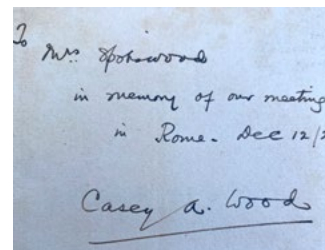 To
Mrs. Spotswood
in memory of our meeting
in Rome. Dec 12/2
Casey A. Wood